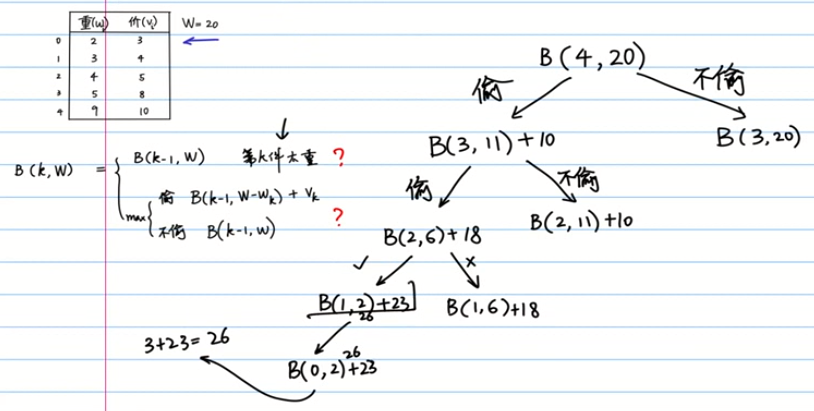 重(wᵢ) 价(vᵢ) W=20
0 2 3
1 3 4
2 4 5
3 5 8
4 9 10
B(k,W) =
B(k-1, W) 第k件太重 ?
max
偷 B(k-1, W-wₖ) + vₖ
不偷 B(k-1, W)
?
B(4,20)
偷 不偷
B(3,11)+10 B(3,20)
偷 不偷
B(2,6)+18 B(2,11)+10
✓ ×
B(1,2)+23 B(1,6)+18
26
26
B(0,2)+23
3+23=26